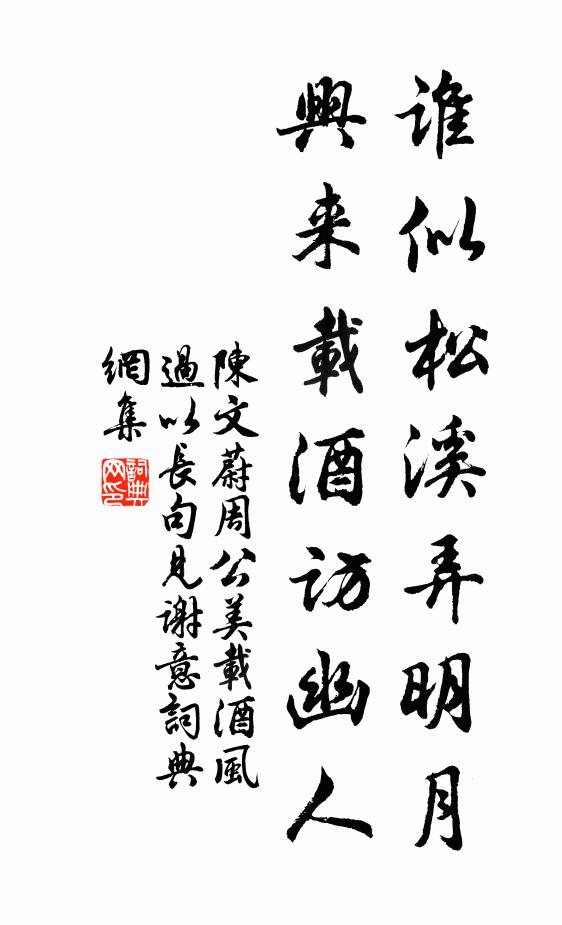 谁似松溪弄明月
興来載酒访幽人
陳文蔚周公美載酒風
過以長句見謝意詞典
網集
詞典
网印